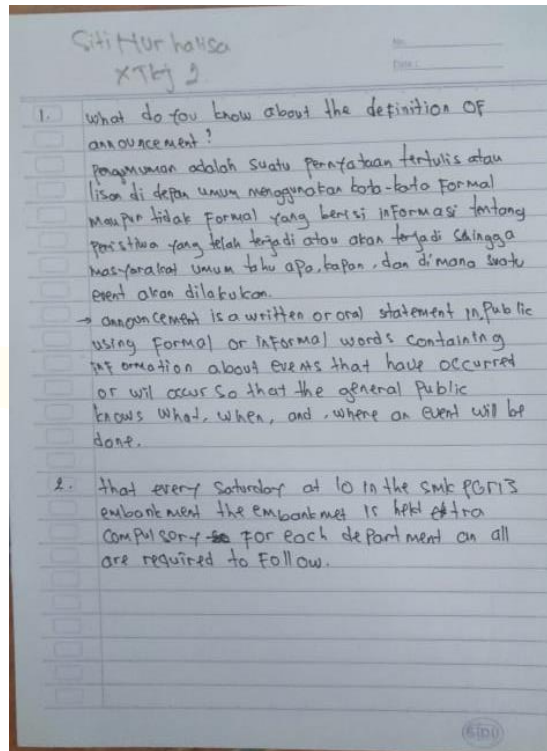 Siti Nur halisa
XTkj 2
No.
Date :
1. what do you know about the definition OF
announcement?
pengumuman adalah suatu pernyataan tertulis atau
lisan di depan umum menggunakan kata-kata Formal
maupun tidak Formal yang berisi informasi tentang
peristiwa yang telah terjadi atau akan terjadi sehingga
masyarakat umum tahu apa, kapan, dan dimana suatu
event akan dilakukan.
→ announcement is a written or oral statement in public
using formal or informal words containing
information about events that have occurred
or wil occur so that the general public
knows what, when, and, where an event will be
done.
2. that every Saturday at 10 in the smk PGRI 3
embankment the embankmet is held extra
compulsory for each department an all
are required to Follow.
SIDU